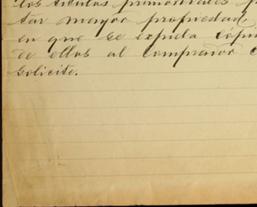 los títulos primordiales
tar mayor propiedad,
en que se expida copia
de ellos al comprador
solicite.